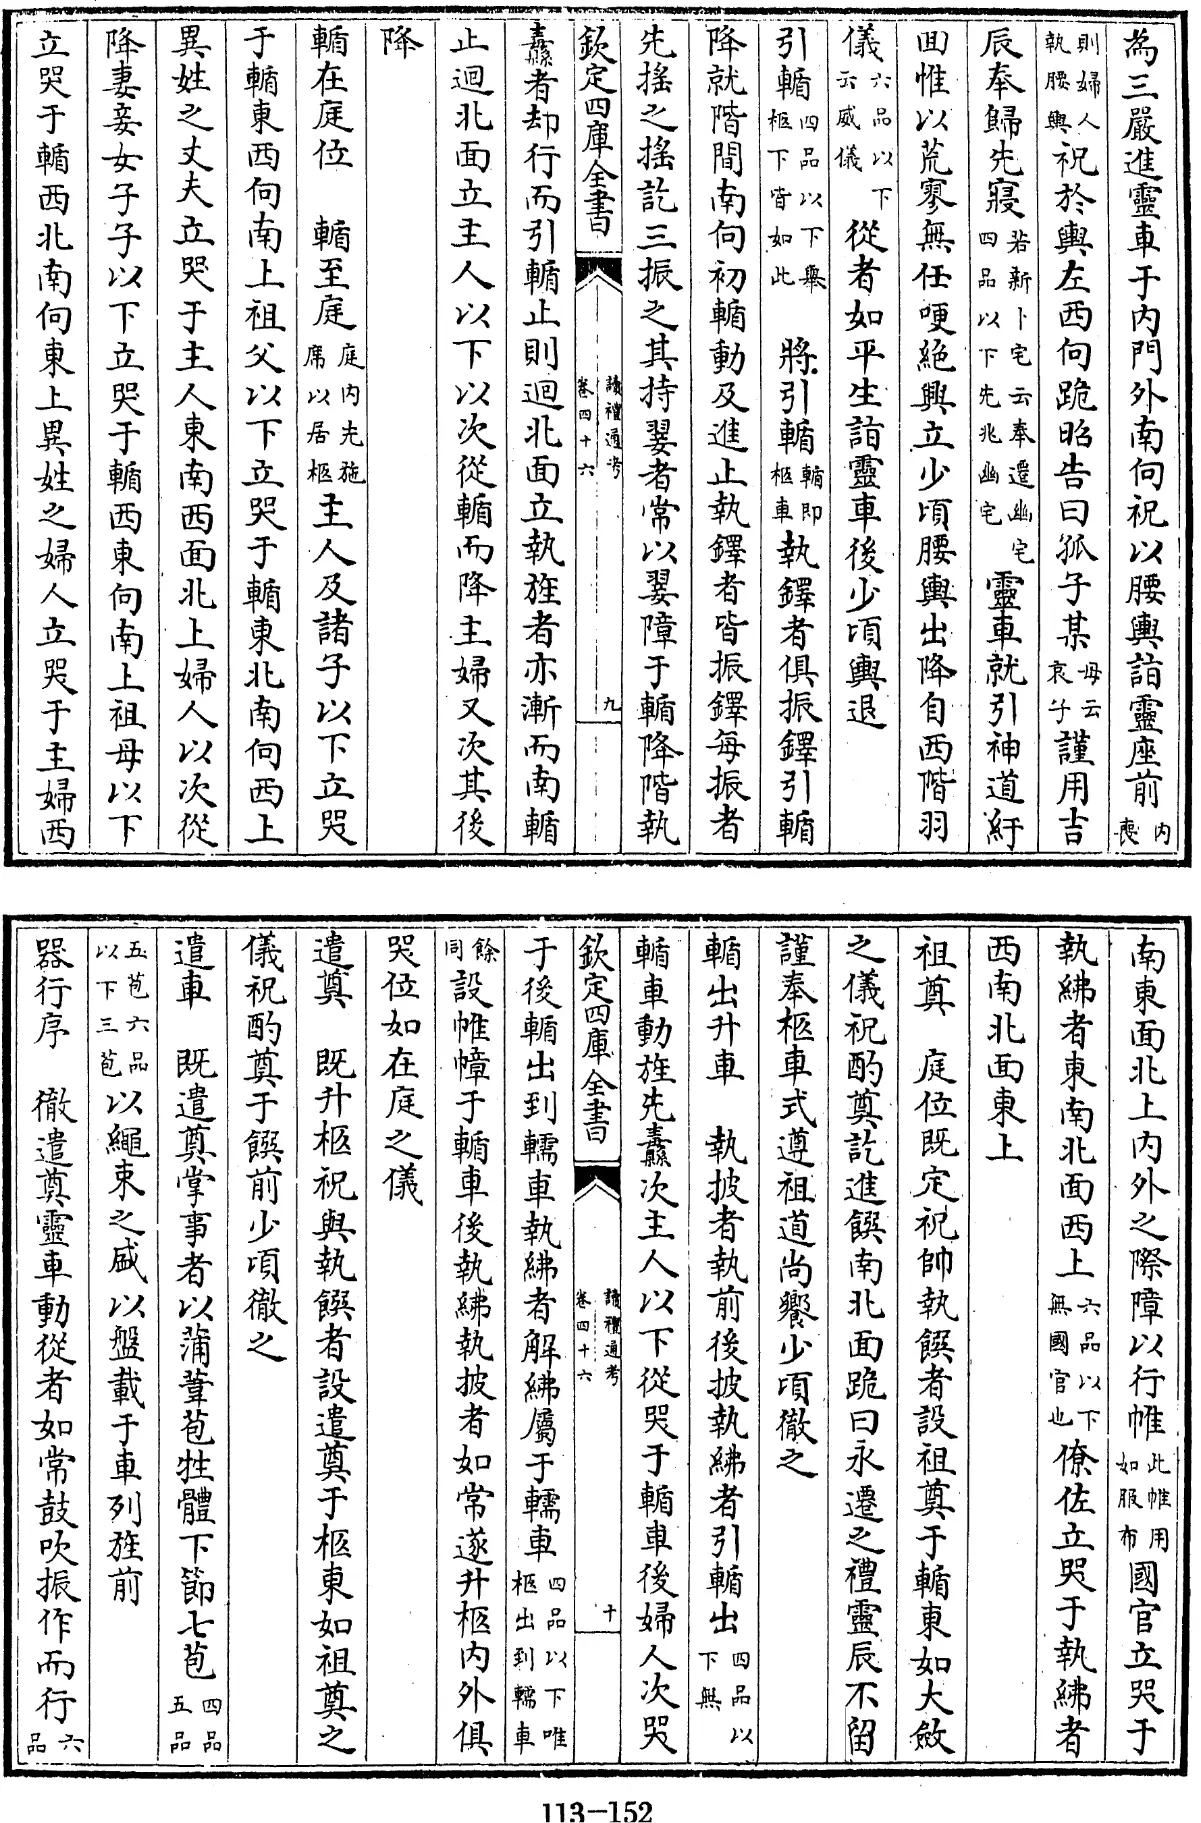 為三嚴進靈車于内門外南向祝以腰輿詣靈座前内喪
則婦人執腰輿祝於輿左西向跪昭告曰孤子某母云哀子謹用吉
辰奉歸先寢若新卜宅云奉遷幽宅四品以下先兆幽宅靈車就引神道紆
回惟以荒寥無任哽絕興立少頃腰輿出降自西階羽
儀六品以下云威儀從者如平生詣靈車後少頃輿退
引輴四品以下舉柩下皆如此 將引輴輴即柩車執鐸者俱振鐸引輴
降就階間南向初輴動及進止執鐸者皆振鐸每振者
先搖之搖訖三振之其持翣者常以翣障于輴降階執
欽定四庫全書 讀禮通考卷四十六 九
纛者却行而引輴止則迴北面立執旌者亦漸而南輴
止迴北面立主人以下以次從輴而降主婦又次其後
降
輴在庭位 輴至庭庭内先施席以居柩主人及諸子以下立哭
于輴東西向南上祖父以下立哭于輴東北南向西上
異姓之丈夫立哭于主人東南西面北上婦人以次從
降妻妾女子子以下立哭于輴西東向南上祖母以下
立哭于輴西北南向東上異姓之婦人立哭于主婦西
南東面北上内外之際障以行帷此帷用如服布國官立哭于
執紼者東南北面西上六品以下無國官也僚佐立哭于執紼者
西南北面東上
祖奠 庭位既定祝帥執饌者設祖奠于輴東如大斂
之儀祝酌奠訖進饌南北面跪曰永遷之禮靈辰不留
謹奉柩車式遵祖道尚饗少頃徹之
輴出升車 執披者執前後披執紼者引輴出四品以下無
輴車動旌先纛次主人以下從哭于輴車後婦人次哭
欽定四庫全書 讀禮通考卷四十六 十
于後輴出到轜車執紼者解紼屬于轜車四品以下唯柩出到轜車
餘同設帷幛于輴車後執紼執披者如常遂升柩内外俱
哭位如在庭之儀
遣奠 既升柩祝與執饌者設遣奠于柩東如祖奠之
儀祝酌奠于饌前少頃徹之
遣車 既遣奠掌事者以蒲葦苞牲體下節七苞四品五品
五苞六品以下三苞以繩束之盛以盤載于車列旌前
器行序 徹遣奠靈車動從者如常鼓吹振作而行六品
113-152